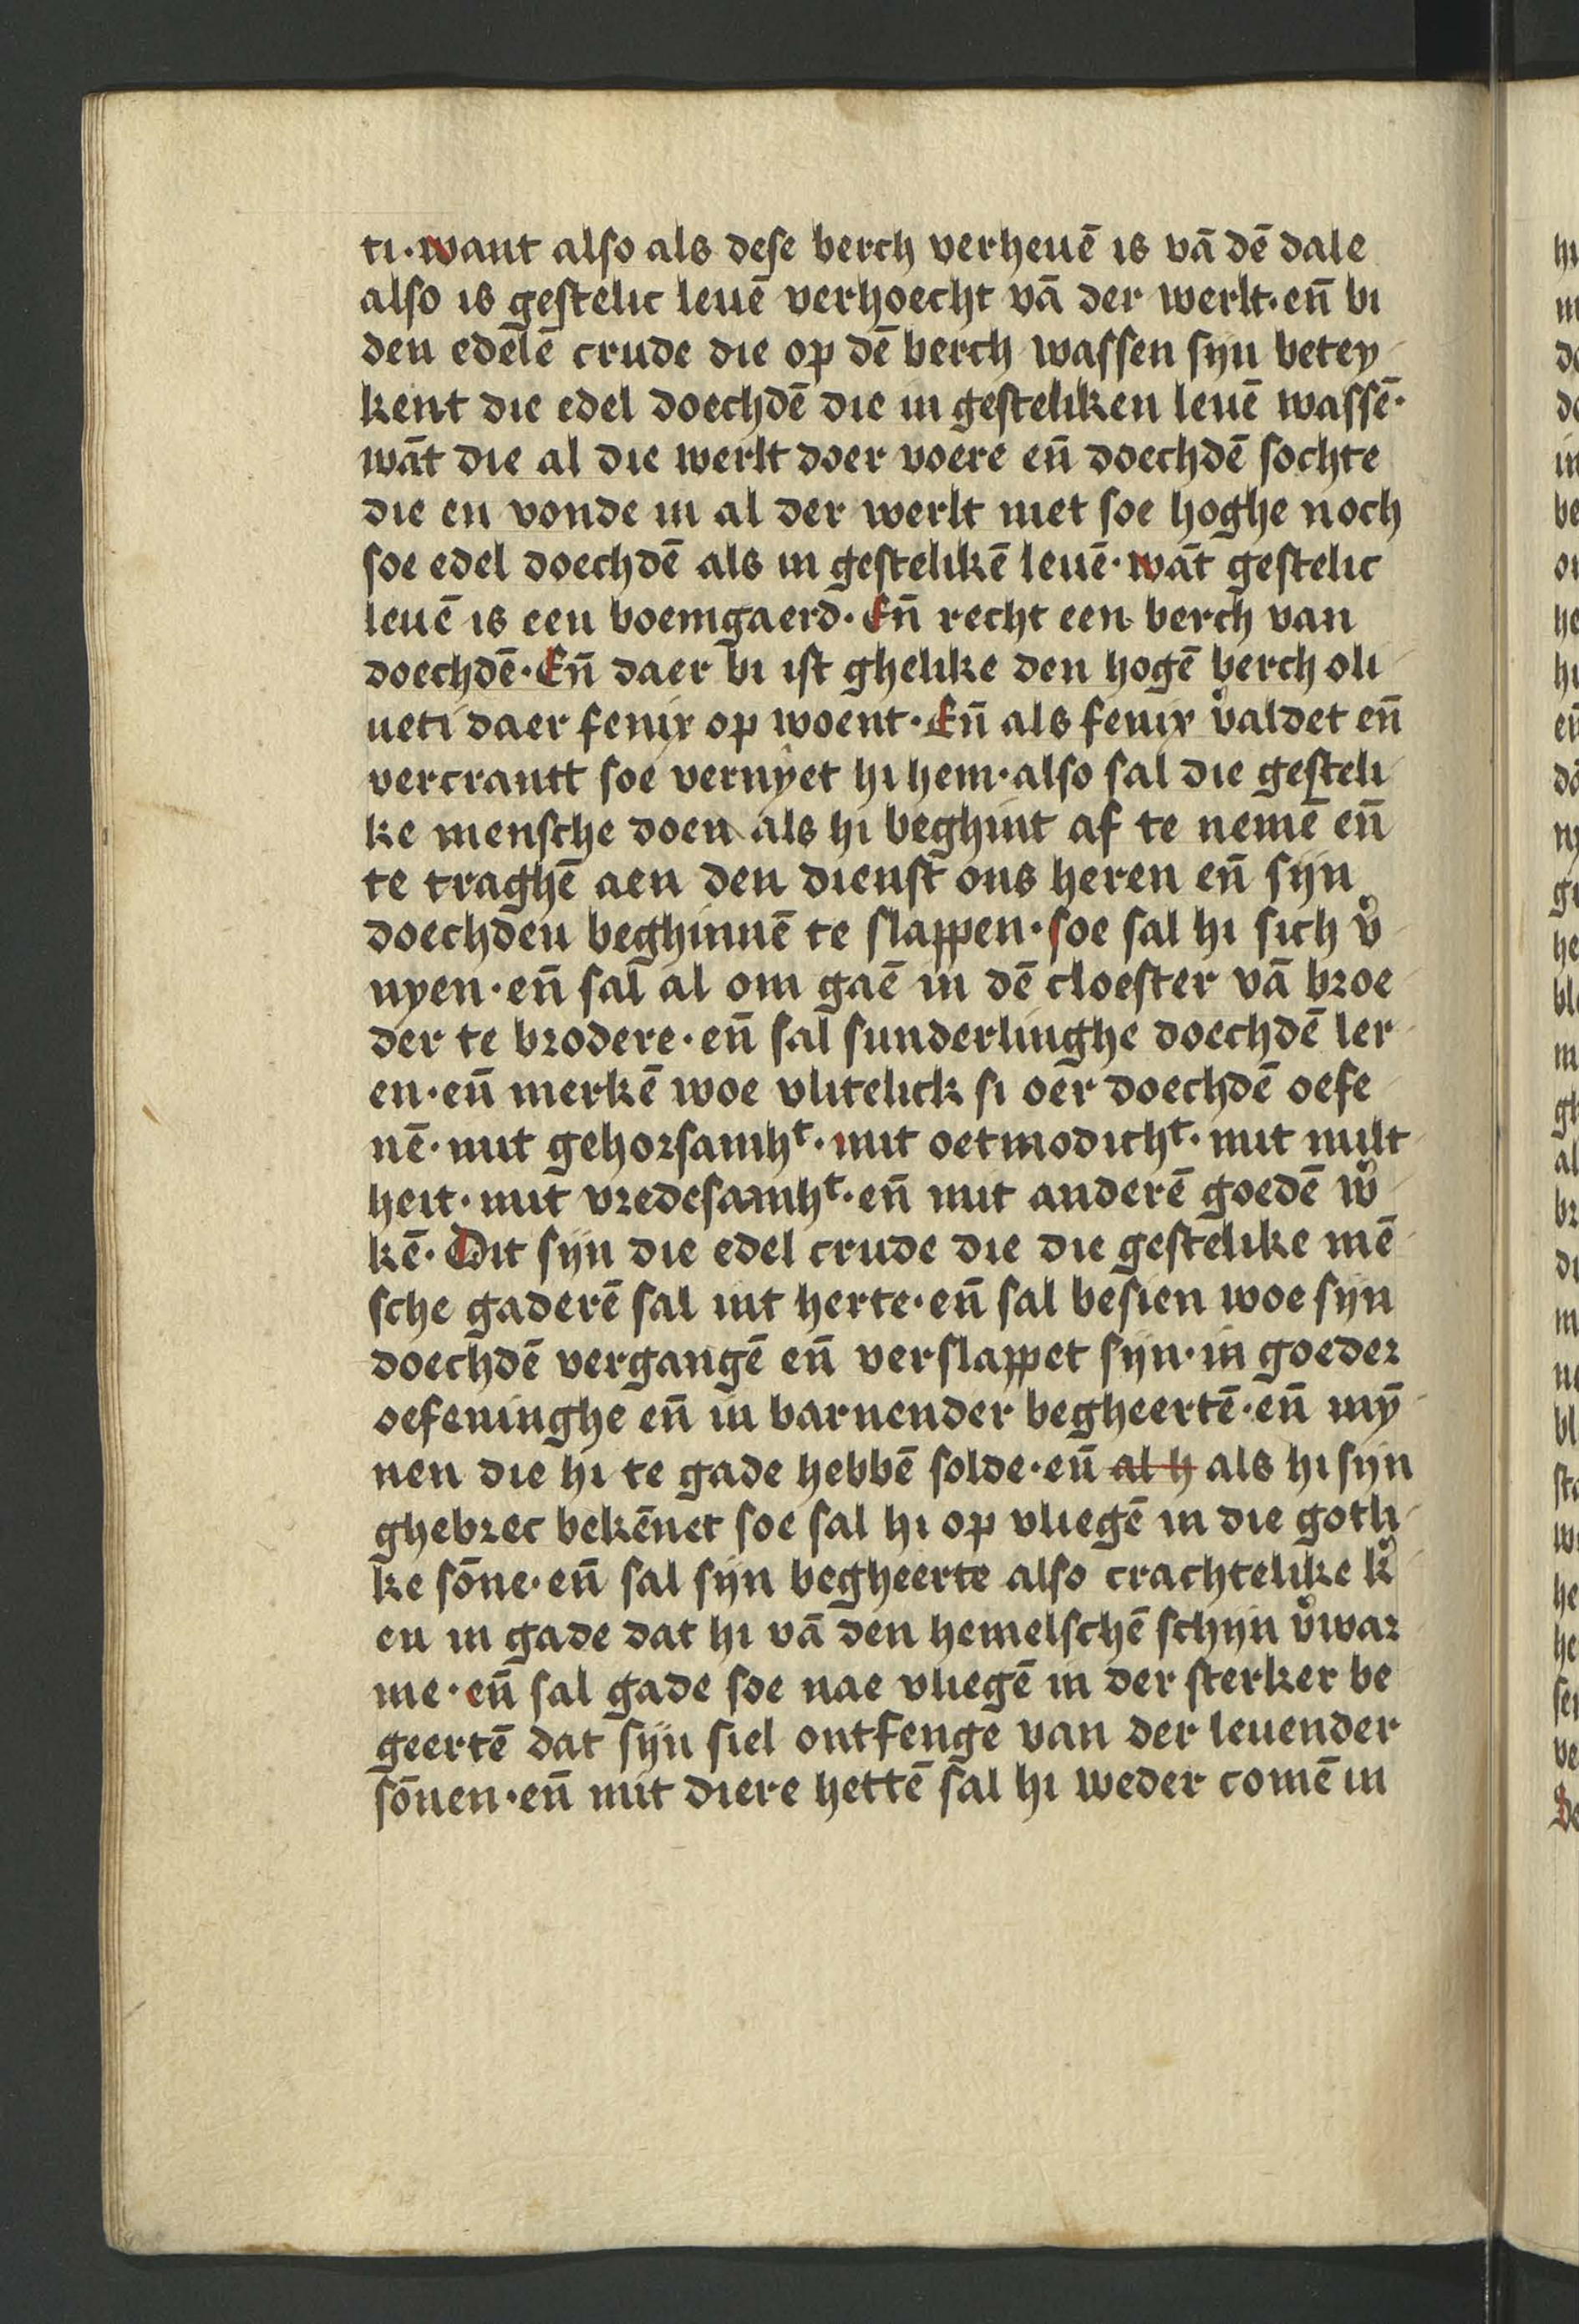 ti·want also als dese berch verheuē is vā dē dale
also is gestelic leuē verhoecht vā der werlt·en̄ bi
den edelē crude die op dē berch wassen syn betey
kent die edel doechdē die in gesteliken leuē wassē·
wāt die al die werlt doer voere en̄ doechdē sochte
die en vonde in al der werlt niet soe hoghe noch
soe edel doechdē als in gestelikē leuē·wāt gestelic
leuē is een boemgaerd·En̄ recht een berch van
doechdē·En̄ daer bi ist ghelike den hogē berch oli
ueti daer fenix op woent·En̄ als fenix v͛aldet en̄
vercrantt soe vernyet hi hem·also sal die gesteli
ke mensche doen als hi beghint af te nemē en̄
te traghē aen den dienst ons heren en̄ sijn
doechden beghinnē te slappen·soe sal hi sich v͛
nyen·en̄ sal al om gaē in dē cloester vā broe
der te brodere·en̄ sal sunderlinghe doechdē ler
en·en̄ merkē woe vlitelick si oer doechdē oefe
nē·mit gehorsamhᵗ·mit oetmodichᵗ·mit milt
heit·mit vredesamhᵗ·en̄ mit anderē goedē w͛
kē·Dit sijn die edel crude die die gestelike mē
sche gaderē sal int herte·en̄ sal besien woe sijn
doechdē vergangē en̄ verslappet sijn·in goeder
oefeninghe en̄ in barnender begheertē·en̄ mȳ
nen die hi te gade hebbē solde·en̄ al h als hi sijn
ghebrec bekēnet soe sal hi op vliegē in die gotli
ke sōne·en̄ sal sijn begheerte also crachtelike k͛
en in gade dat hi vā den hemelschē schijn v͛war
me·en̄ sal gade soe nae vliegē in der sterker be
geertē dat sijn siel ontfenge van der leuender
sōnen·en̄ mit diere hettē sal hi weder comē in